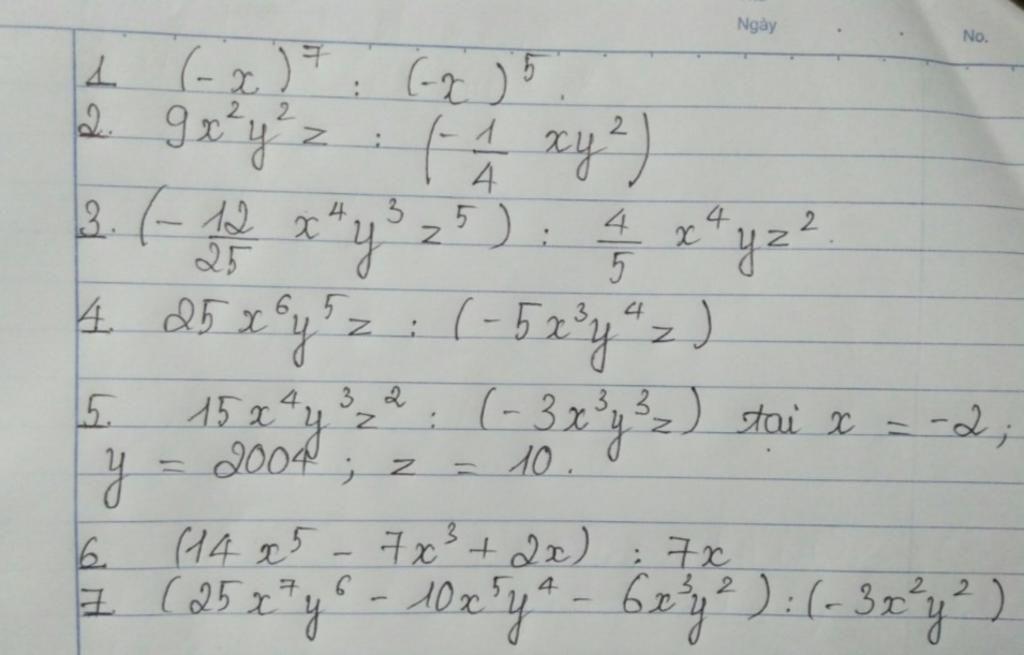 Ngày No.
1. (-x)⁷ : (-x)⁵.
2. 9x²y²z : (-1/4 xy²)
3. (-12/25 x⁴y³z⁵) : 4/5 x⁴yz².
4. 25x⁶y⁵z : (-5x³y⁴z)
5. 15x⁴y³z² : (-3x³y³z) tại x = -2;
y = 2004; z = 10.
6. (14x⁵ - 7x³ + 2x) : 7x
7. (25x⁷y⁶ - 10x⁵y⁴ - 6x³y²) : (-3x²y²)